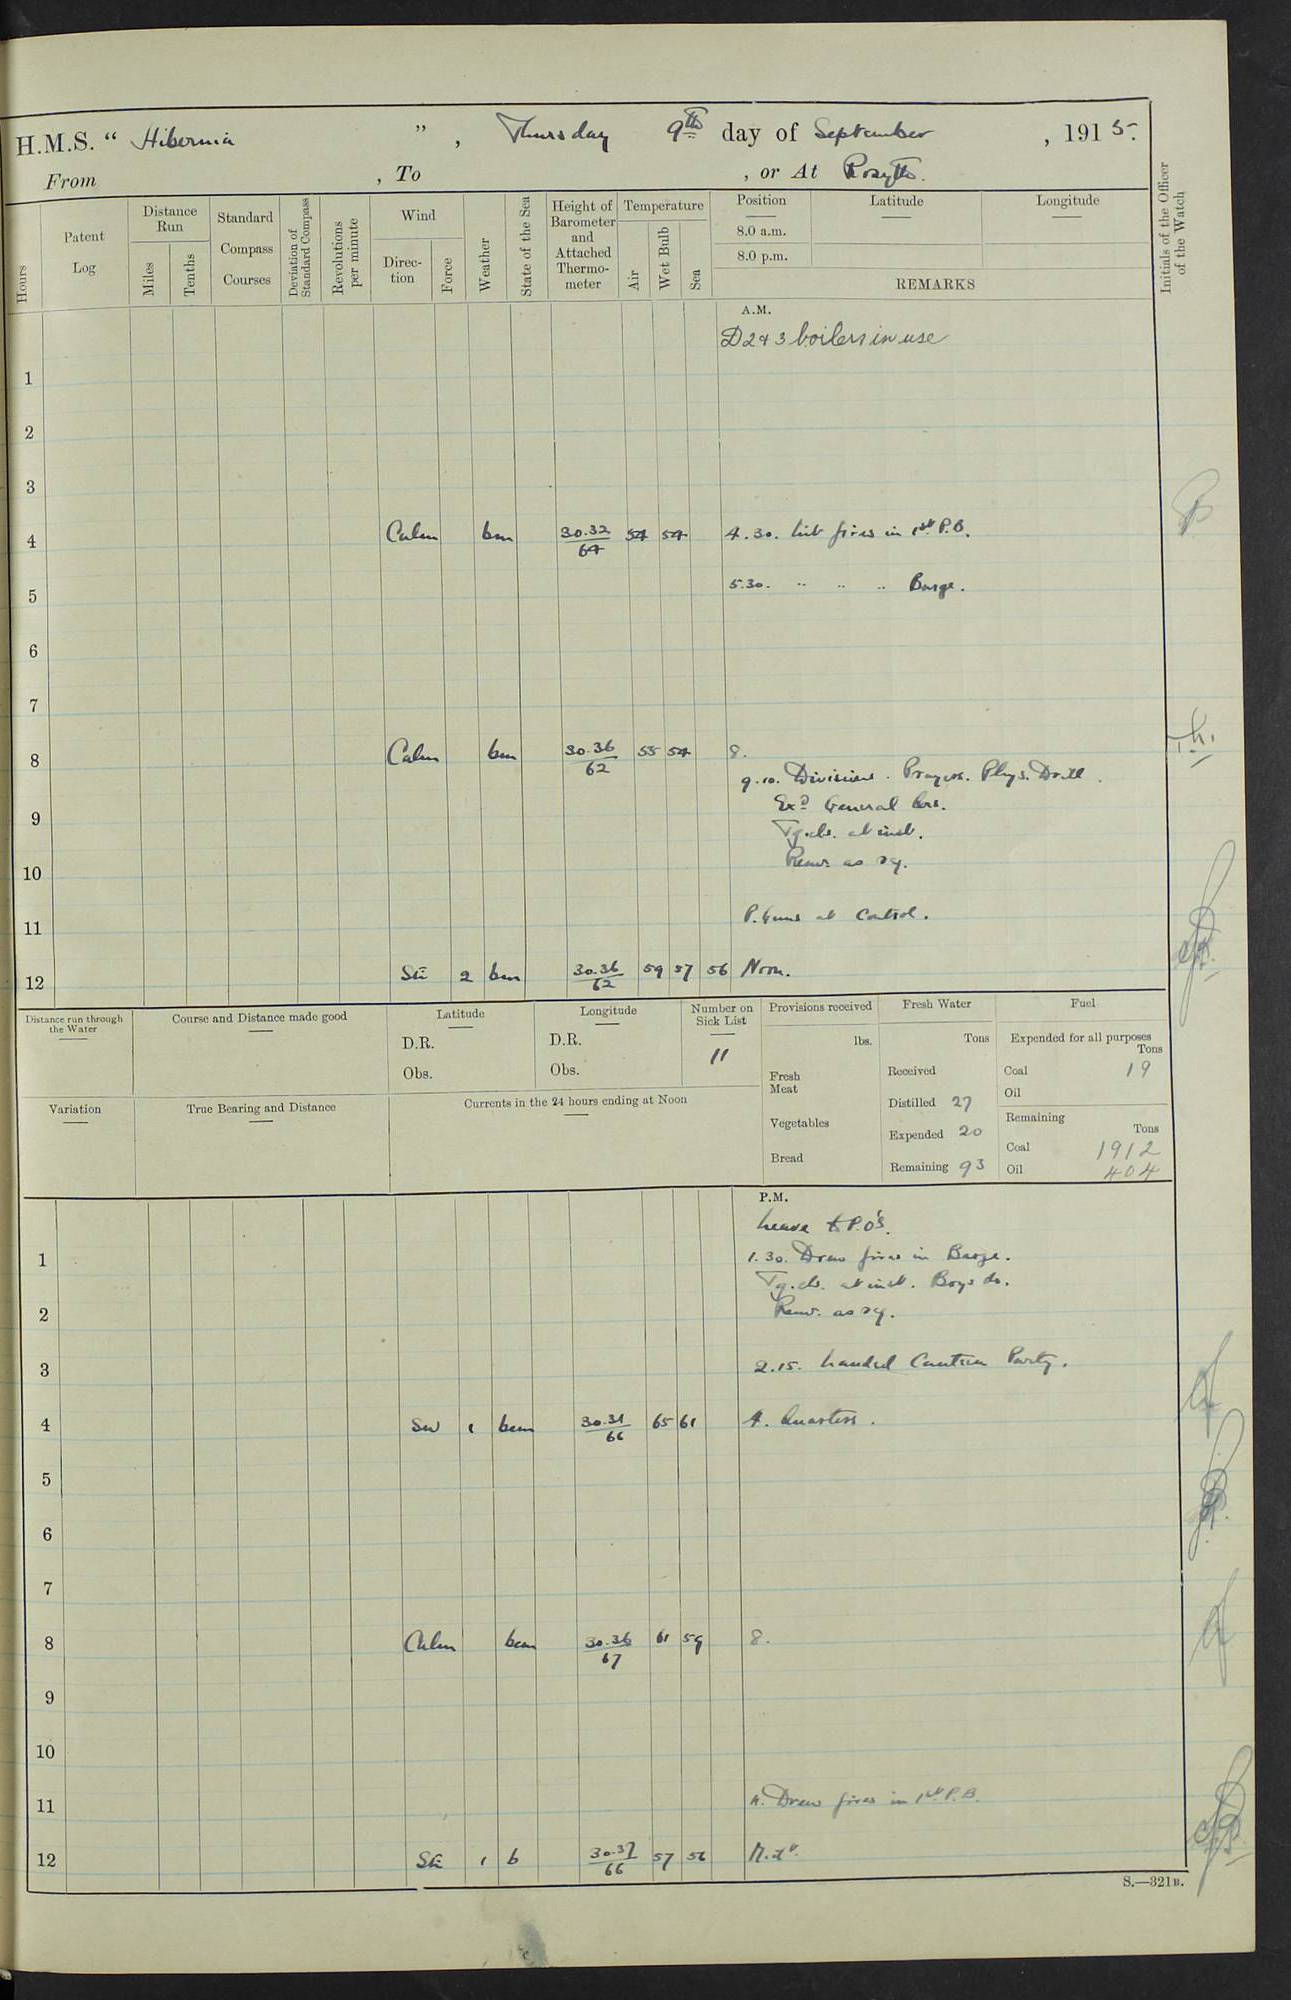 H.M.S. “ Hibernia ” , Thursday 9th day of September , 1915.
From , To , or At Rosyth.
Hours
Patent Log
Distance Run
Miles
Tenths
Standard Compass Courses
Deviation of Standard Compass
Revolutions per minute
Wind
Direction
Force
Weather
State of the Sea
Height of Barometer and Attached Thermometer
Temperature
Air
Wet Bulb
Sea
Position Latitude Longitude
8.0 a.m.
8.0 p.m.
REMARKS
Initials of the Officer of the Watch
A.M.
D 2 & 3 boilers in use
1
2
3
4 Calm bm 30.32/64 54 54 4.30. Lit fires in 1st P.B.
5 5.30. " " " Barge.
6
7
8 Calm bm 30.36/62 55 54 8.
9.10. Divisions. Prayers. Phys. Drill.
9 Exd General Qrs.
Tg. cls. at inst.
10 Remr. as rq.
11 P. Guns at Control.
12 2 bm 30.36/62 59 57 56 Noon.
Distance run through the Water
Course and Distance made good
Latitude
D.R.
Obs.
Longitude
D.R.
Obs.
Number on Sick List
11
Provisions received
lbs.
Fresh Meat
Vegetables
Bread
Fresh Water
Tons
Received
Distilled 27
Expended 20
Remaining 93
Fuel
Expended for all purposes
Tons
Coal 19
Oil
Remaining
Tons
Coal 1912
Oil 404
Variation
True Bearing and Distance
Currents in the 24 hours ending at Noon
P.M.
Leave to P.O's.
1 1.30. Drew fires in Barge.
Tg. cls. at inst. Boys do.
2 Remr. as rq.
3 2.15. Landed Canteen Party.
4 SW 1 bcm 30.31/66 65 61 4. Quarters.
5
6
7
8 Calm bcm 30.36/67 61 59 8.
9
10
11 Drew fires in 1st P.B.
12 1 b 30.37/66 57 56
S.—321B.